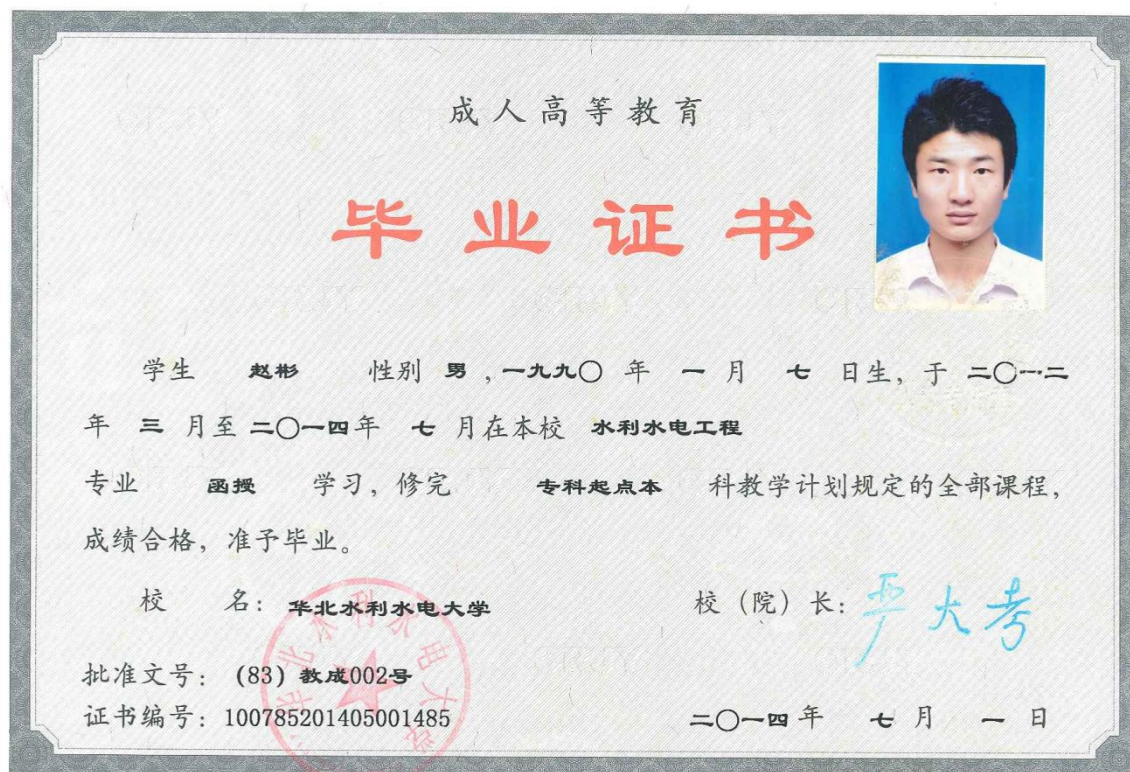 成人高等教育
毕业证书
学生 赵彬 性别 男 ,一九九〇 年 一 月 七 日生, 于 二〇一二
年 三 月至 二〇一四年 七 月在本校 水利水电工程
专业 函授 学习, 修完 专科起点本 科教学计划规定的全部课程,
成绩合格, 准予毕业。
校 名: 华北水利水电大学
校 (院) 长: 严大考
华北水利水电大学
批准文号: (83) 教成002号
证书编号: 100785201405001485
二〇一四年 七 月 一 日